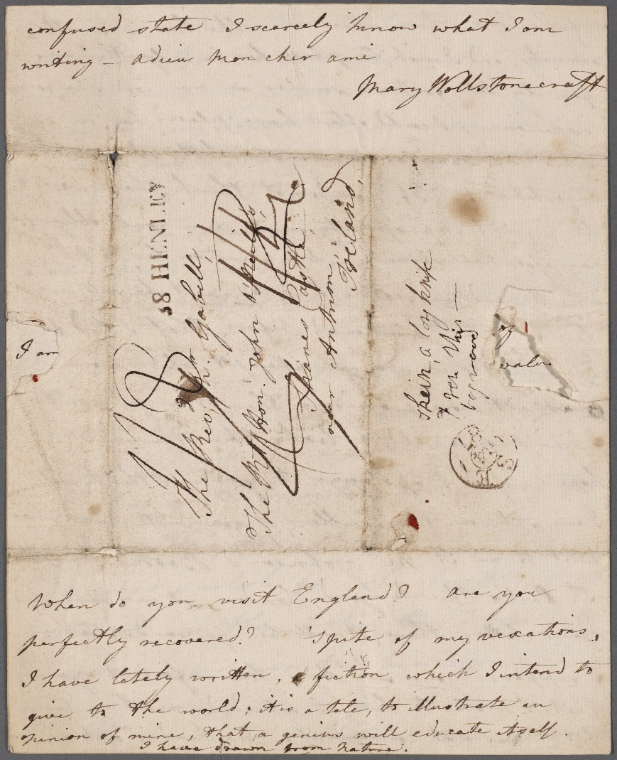 confused state I scarcely know what I am
writing – adieu mon cher ami
Mary Wollstonecraft
38 HENLEY
The Revd Mr. Gabell,
The Rt. Hon. John O'Neill's,
Shanes Castle,
near Antrim,
Ireland,
I am
of
value
When do you visit England? are you
perfectly recovered? Spite of my vexations,
I have lately written, a fiction which I intend to
give to the world; it is a tale, to illustrate an
opinion of mine, that a genius will educate itself.
I have drawn from Nature.